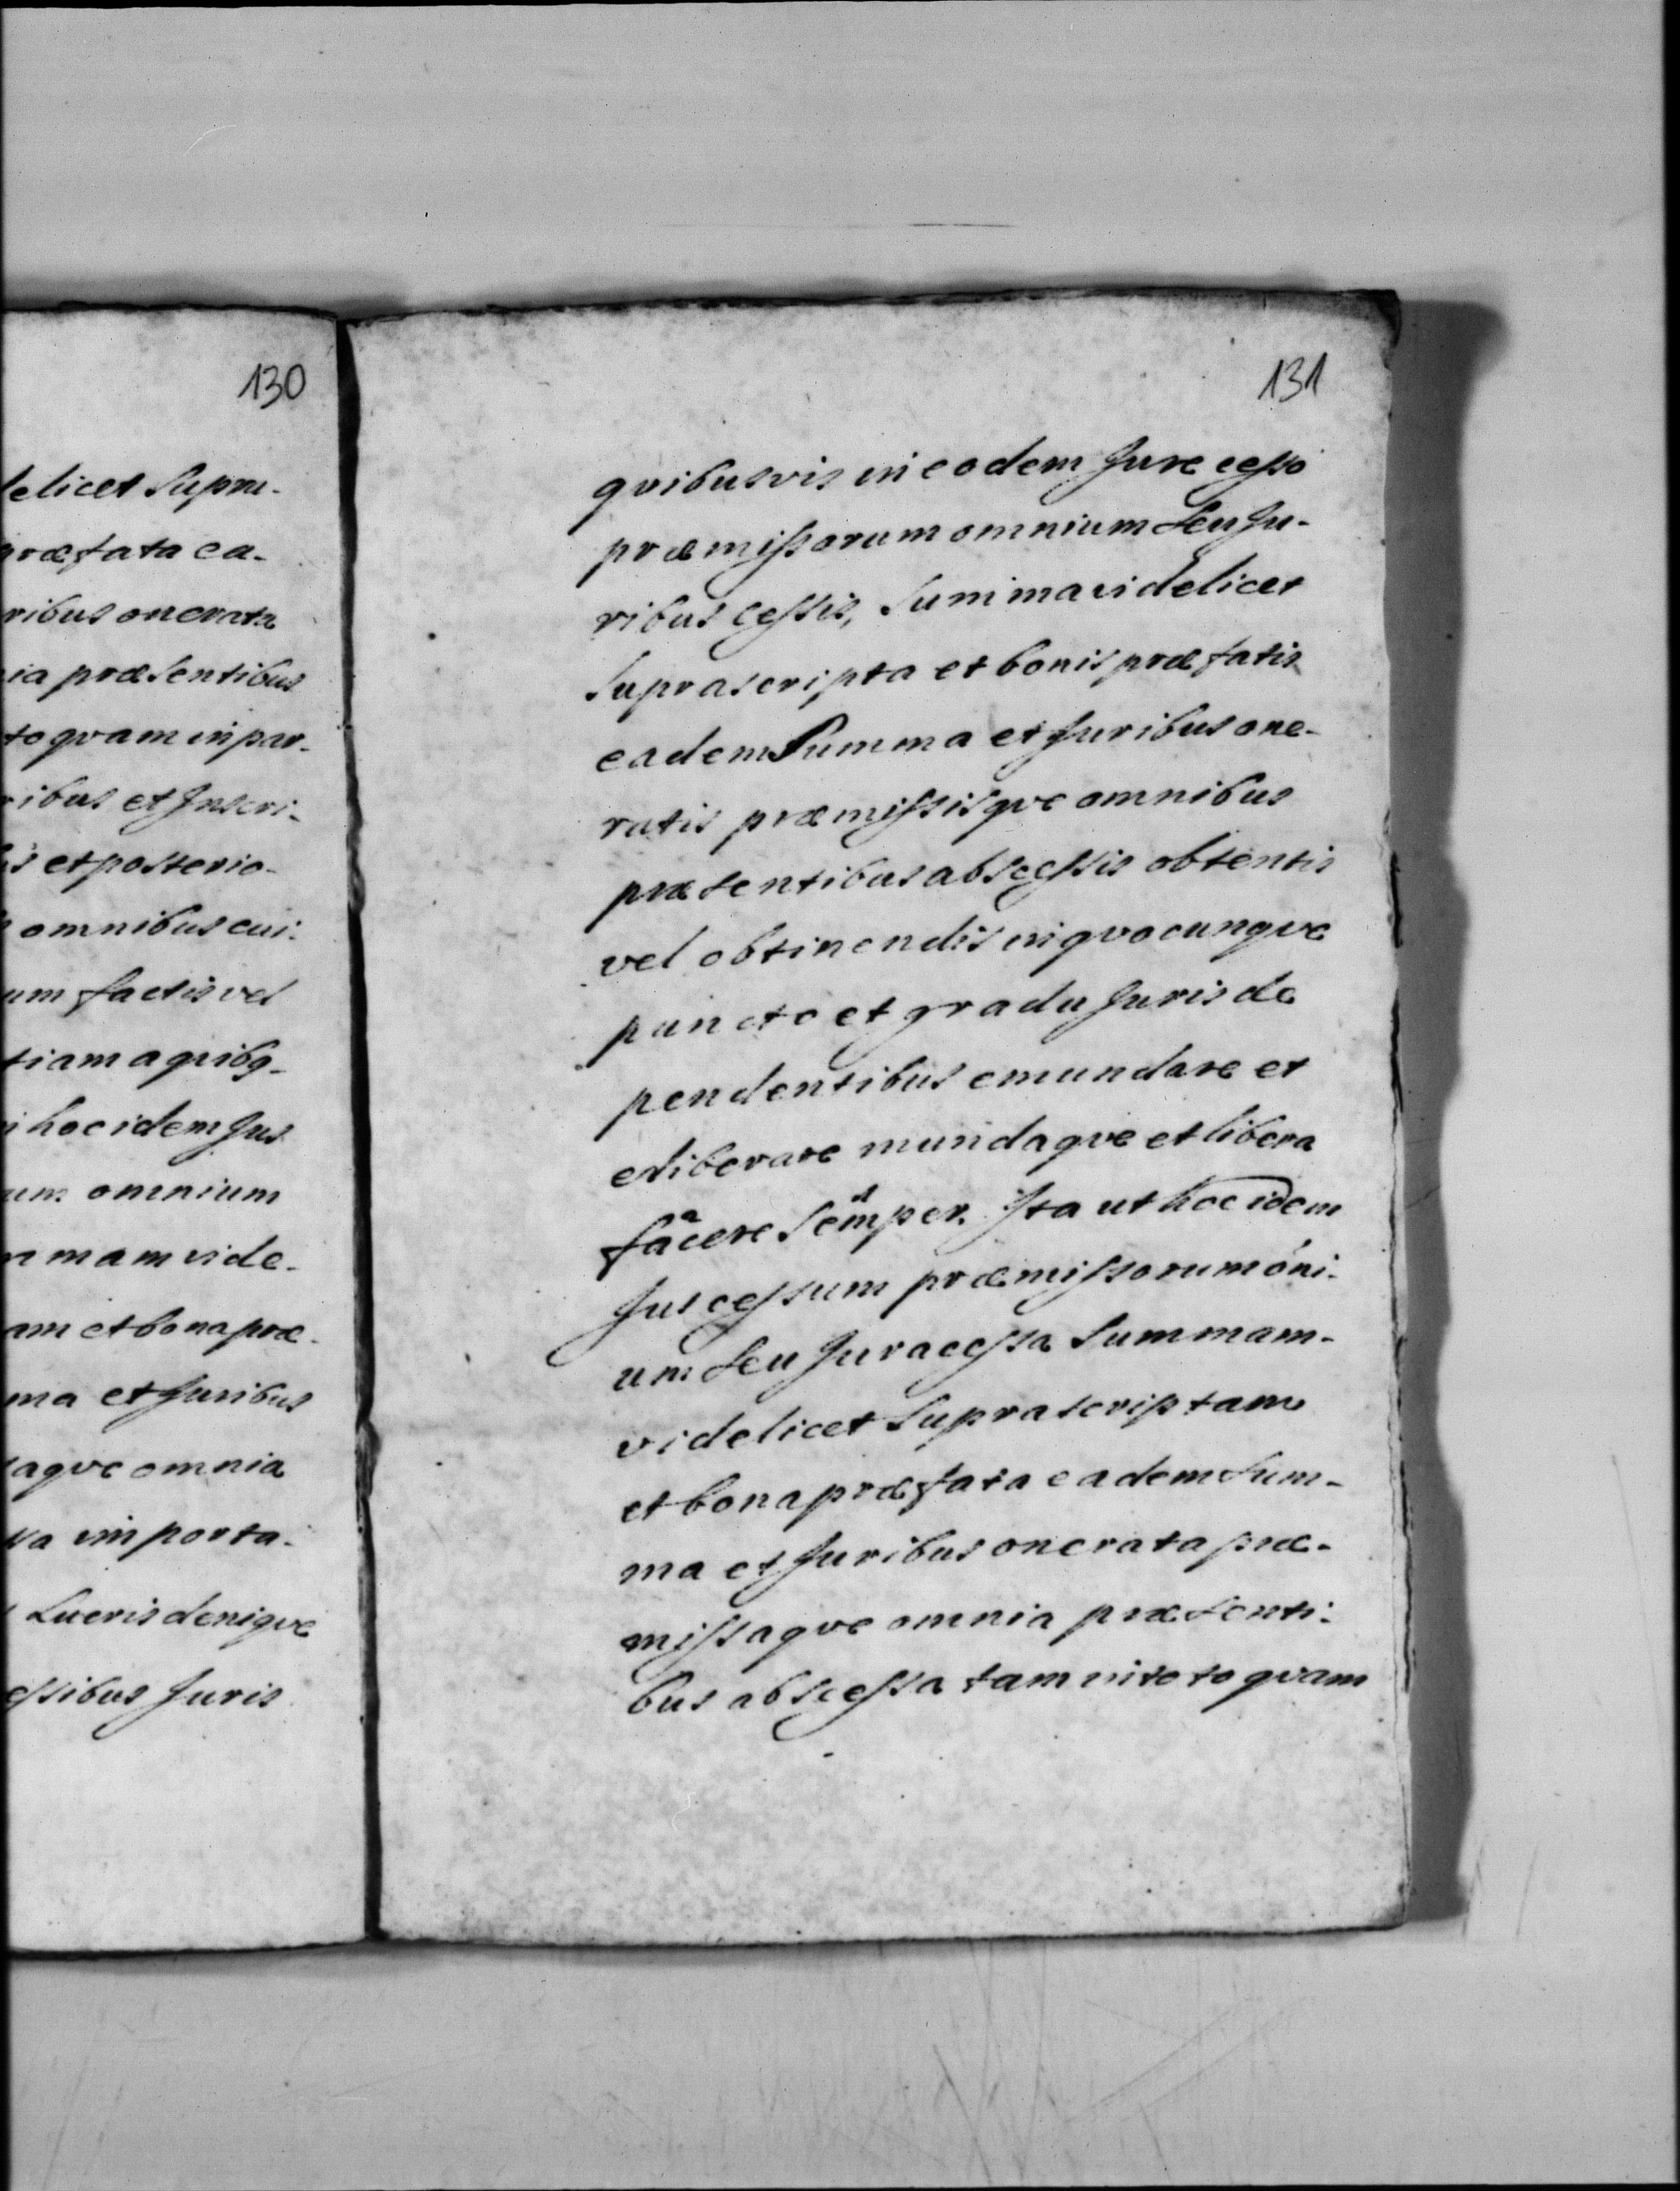 130
delicet Supra-
præfata ea-
ribus onerata
ia præsentibus
to qvam in par-
ribus et Inscri-
is et posterio-
omnibus cui-
um factis vel
tiam a qvibq-
hoc idem Jus
um omnium
mmam vide-
am et bona præ-
ma et Juribus
aqve omnia
in porta-
Lucris deniqve
essibus Juris
131
qvibusvis in eodem Jure cesso
præmissorum omnium Seu Ju-
ribus cessis, Summa videlicet
Suprascripta et bonis præfatis
eadem Summa et Juribus one-
ratis præmissisqve omnibus
præsentibus abscessis obtentis
vel obtinendis in qvocunqve
puncto et gradu Juris de
pendentibus emundare et
eliberare mundaqve et libera
facere Semper. Ita ut hoc idem
Jus cessum præmissorum óni-
um Seu Jura cessa Summam-
videlicet Suprascriptam
et bona præfata eadem Sum-
ma et Juribus onerata præ-
missaqve omnia præsenti-
bus abscessa tam in toto qvam